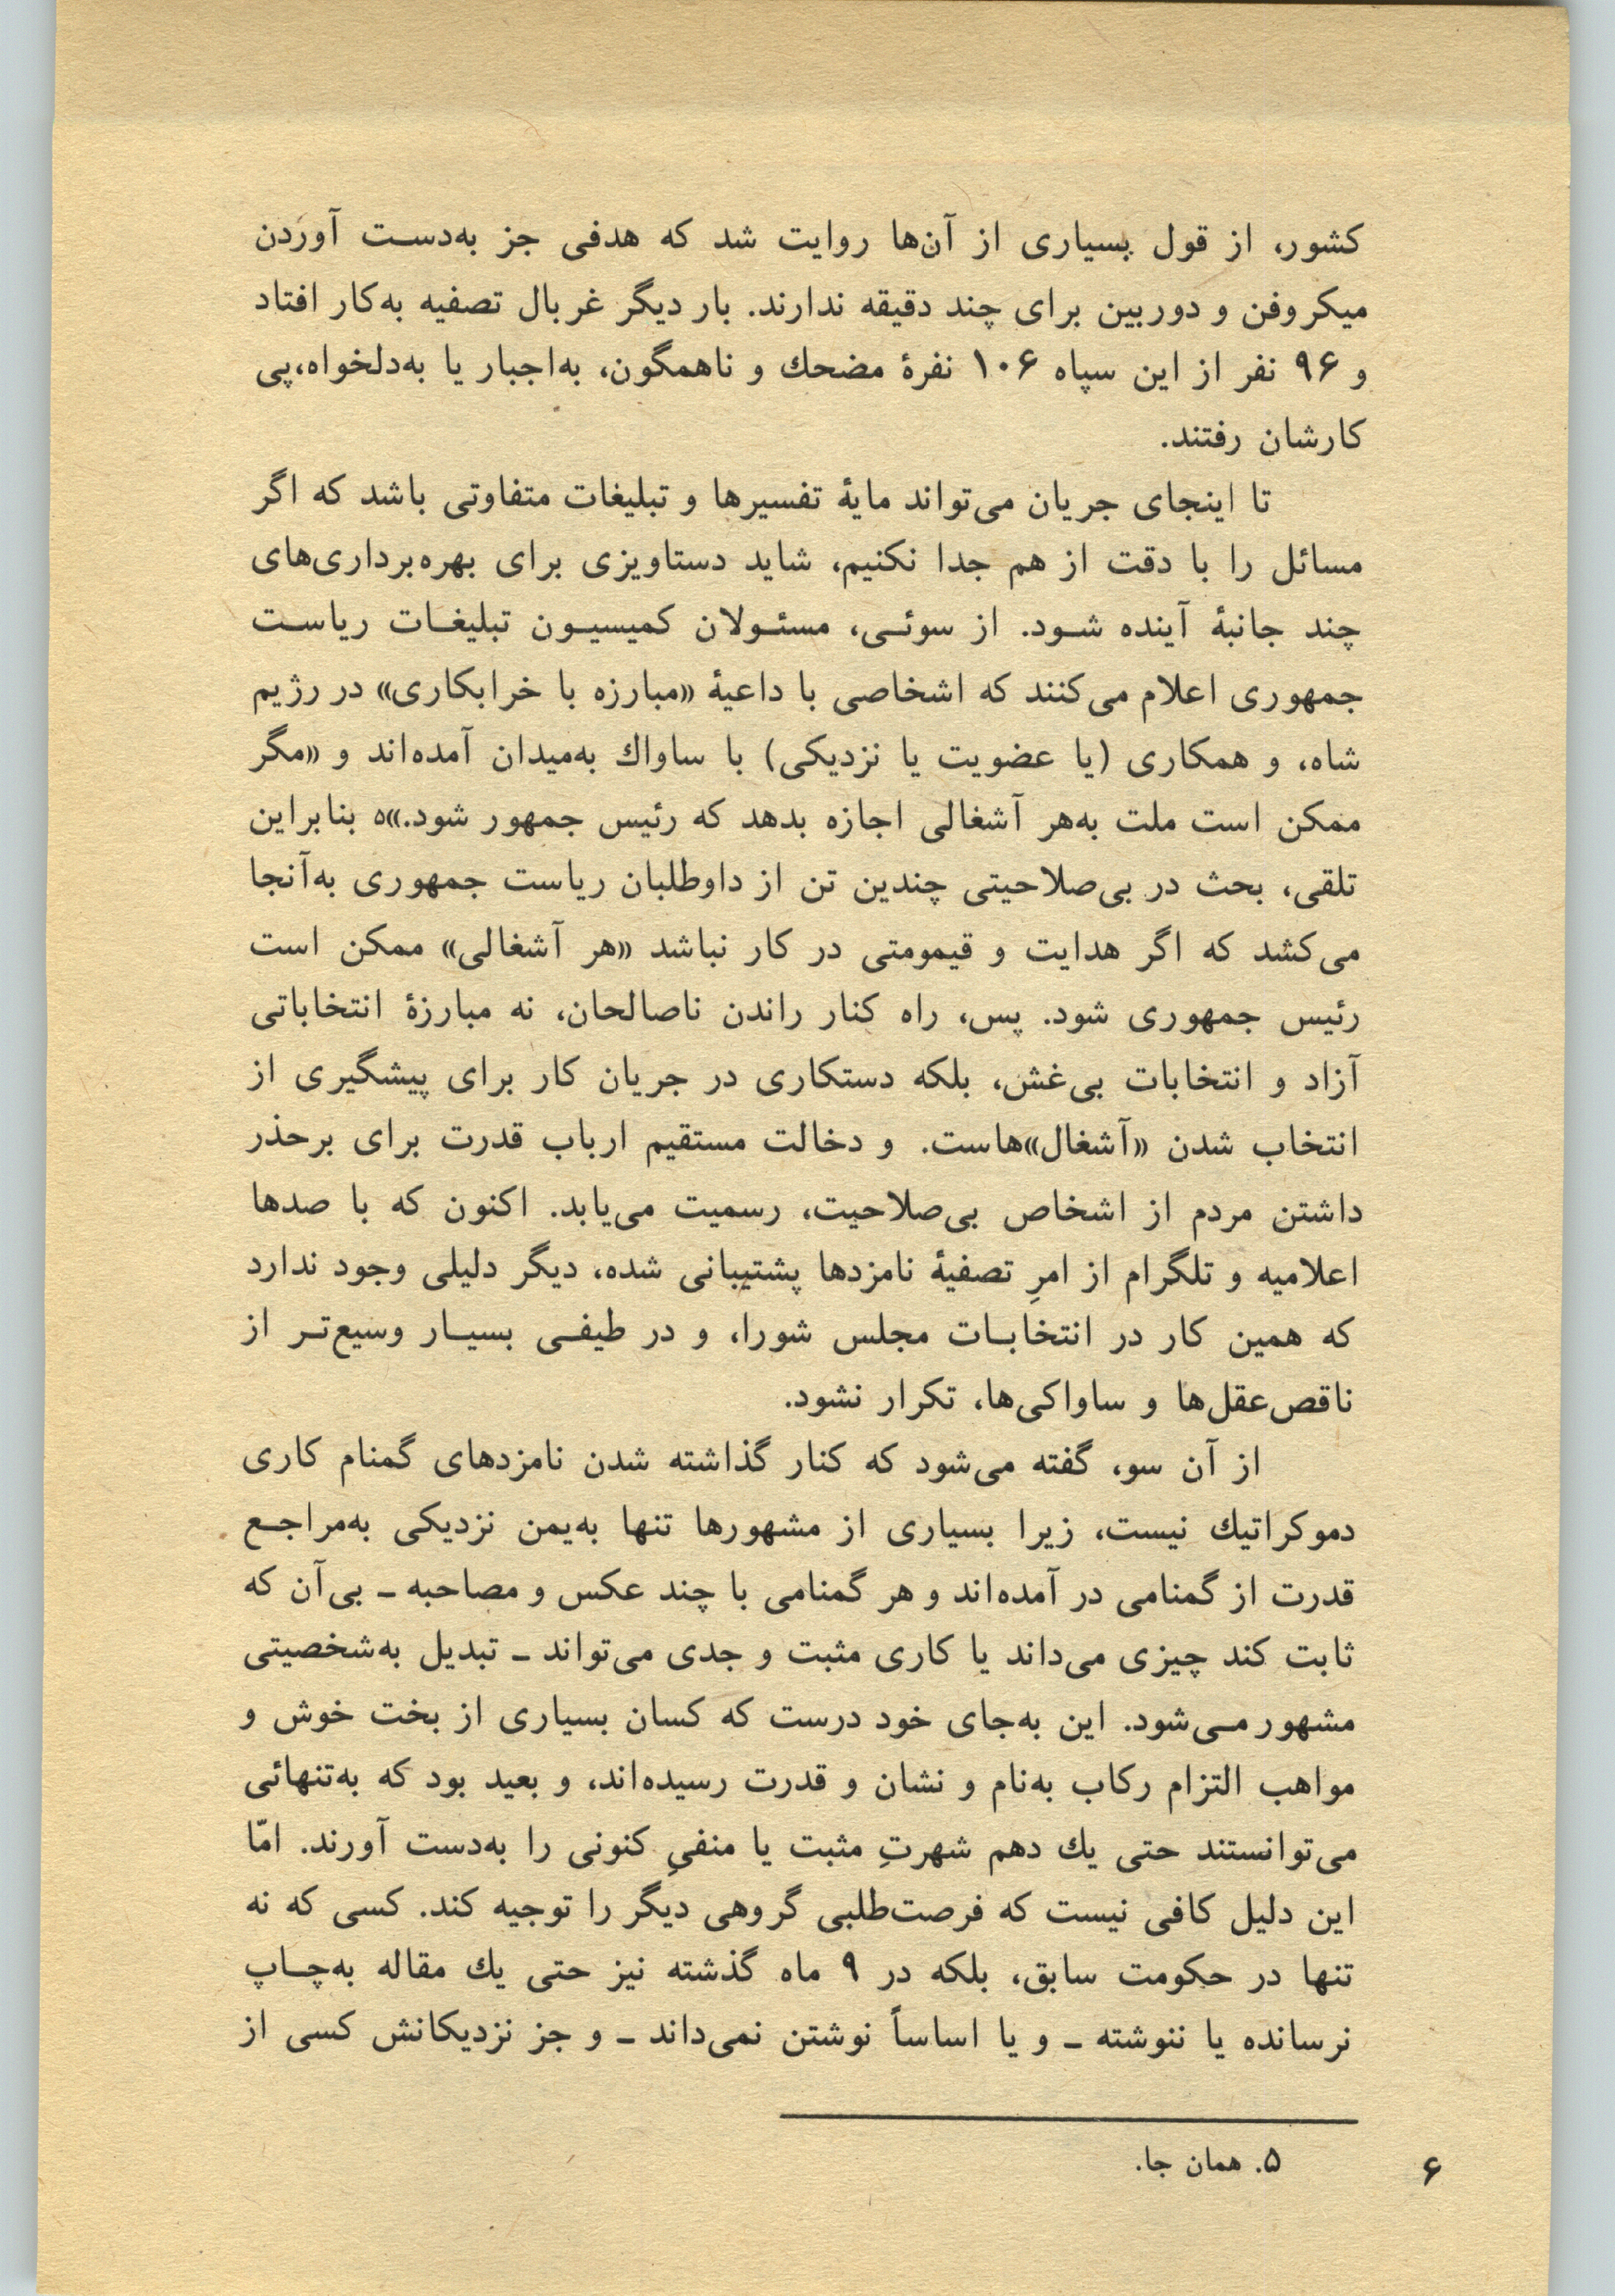 کشور، از قول بسیاری از آن‌ها روایت شد که هدفی جز به‌دست آوردن
میکروفن و دوربین برای چند دقیقه ندارند. بار دیگر غربال تصفیه به‌کار افتاد
و ۹۶ نفر از این سپاه ۱۰۶ نفرهٔ مضحك و ناهمگون، به‌اجبار یا به‌دلخواه،پی
کارشان رفتند.
تا اینجای جریان می‌تواند مایهٔ تفسیرها و تبلیغات متفاوتی باشد که اگر
مسائل را با دقت از هم جدا نکنیم، شاید دستاویزی برای بهره‌برداری‌های
چند جانبهٔ آینده شود. از سوئی، مسئولان کمیسیون تبلیغات ریاست
جمهوری اعلام می‌کنند که اشخاصی با داعیهٔ «مبارزه با خرابکاری» در رژیم
شاه، و همکاری (یا عضویت یا نزدیکی) با ساواك به‌میدان آمده‌اند و «مگر
ممکن است ملت به‌هر آشغالی اجازه بدهد که رئیس جمهور شود.»۵ بنابراین
تلقی، بحث در بی‌صلاحیتی چندین تن از داوطلبان ریاست جمهوری به‌آنجا
می‌کشد که اگر هدایت و قیمومتی در کار نباشد «هر آشغالی» ممکن است
رئیس جمهوری شود. پس، راه کنار راندن ناصالحان، نه مبارزهٔ انتخاباتی
آزاد و انتخابات بی‌غش، بلکه دستکاری در جریان کار برای پیشگیری از
انتخاب شدن «آشغال»هاست. و دخالت مستقیم ارباب قدرت برای برحذر
داشتن مردم از اشخاص بی‌صلاحیت، رسمیت می‌یابد. اکنون که با صدها
اعلامیه و تلگرام از امرِ تصفیهٔ نامزدها پشتیبانی شده، دیگر دلیلی وجود ندارد
که همین کار در انتخابات مجلس شورا، و در طیفی بسیار وسیع‌تر از
ناقص‌عقل‌ها و ساواکی‌ها، تکرار نشود.
از آن سو، گفته می‌شود که کنار گذاشته شدن نامزدهای گمنام کاری
دموکراتیك نیست، زیرا بسیاری از مشهورها تنها به‌یمن نزدیکی به‌مراجع
قدرت از گمنامی در آمده‌اند و هر گمنامی با چند عکس و مصاحبه ـ بی‌آن که
ثابت کند چیزی می‌داند یا کاری مثبت و جدی می‌تواند ـ تبدیل به‌شخصیتی
مشهور می‌شود. این به‌جای خود درست که کسان بسیاری از بخت خوش و
مواهب التزام رکاب به‌نام و نشان و قدرت رسیده‌اند، و بعید بود که به‌تنهائی
می‌توانستند حتی یك دهم شهرتِ مثبت یا منفیِ کنونی را به‌دست آورند. امّا
این دلیل کافی نیست که فرصت‌طلبی گروهی دیگر را توجیه کند. کسی که نه
تنها در حکومت سابق، بلکه در ۹ ماه گذشته نیز حتی یك مقاله به‌چاپ
نرسانده یا ننوشته ـ و یا اساساً نوشتن نمی‌داند ـ و جز نزدیکانش کسی از
۵. همان جا.
۶